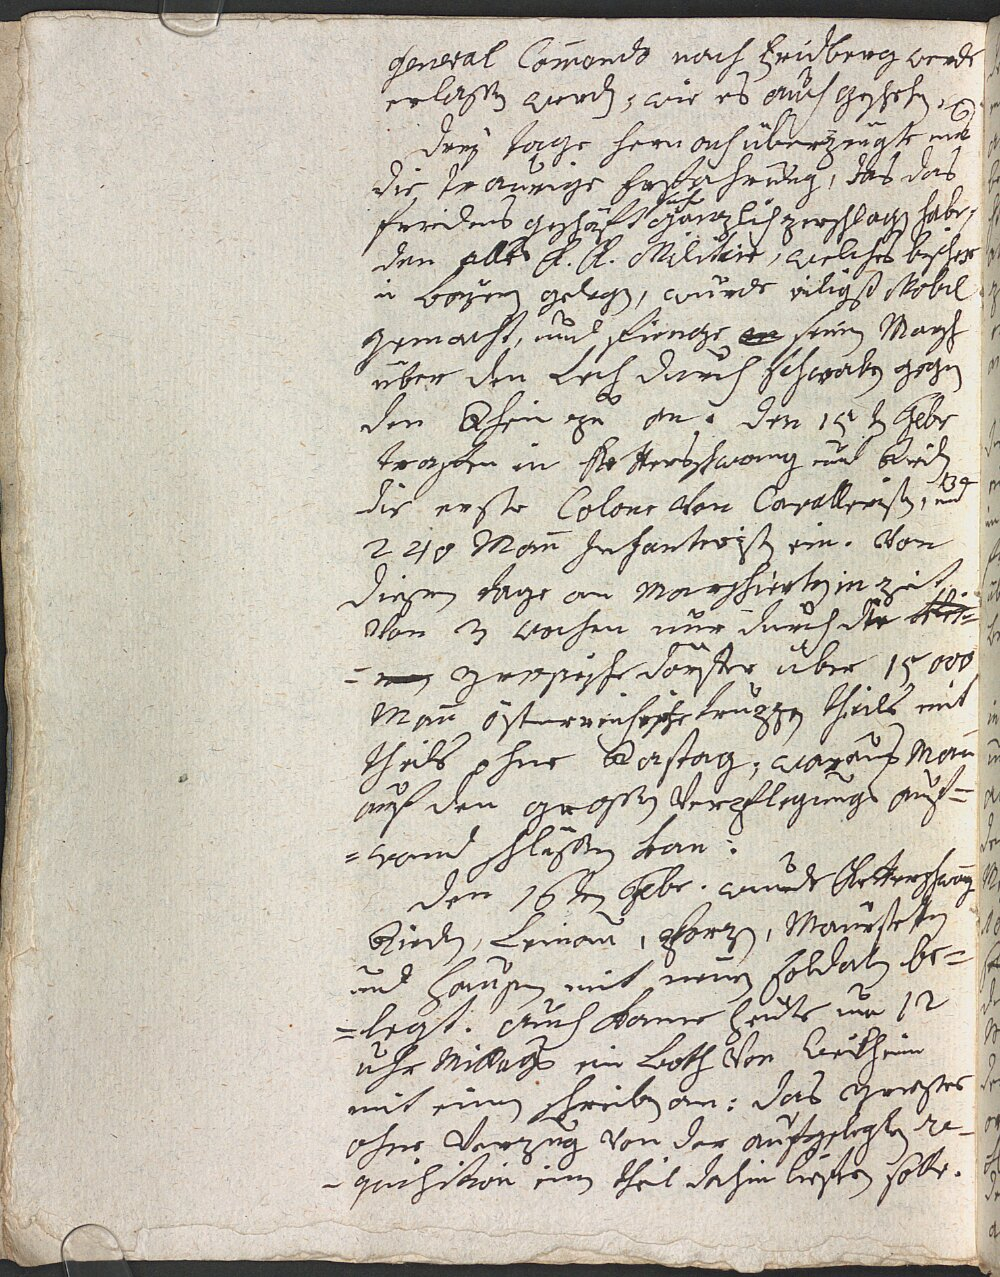 general Com̄ando nach Fridberg werde
erlassen werden; wie es auch geschehen.
Drey tage hernach überzeugte uns
die traurige Erfahrung, das das
friedens geschäft sich gänzlich zerschlagen habe,
den alles K. K. Militair, welches bisher
in Bayern gelegen, wurde eiligst Mobil
gemacht, und fienge an seinen Marsch
über den Lech durch schwaben gegen
den Rhein zu an. den 15t 7br
trafen in Ketterschwang und Rieden
die erste Colone von Cavalleristen, und
240 Man̄ Infanteristen ein. Von
diesem tage an marschierten in zeit
von 3 wochen nur durch die
= dörfer über 15000
Man̄ österreichische truppen theils mit
theils ohne Rastag; woraus Man
auf den grossen Verpflegungs auf=
=wand schlüssen kan:
Den 16ten 7br. wurde Ketterschwang
Rieden, Leinau, pforzen, Maurstetten
und Hausen mit neuen soldaten be=
=legt. auch kame heute um 12
uhr Mittags ein Both von
mit einem schreiben an: das
ohne Verzug von der aufgelegten re-
-quisition einen theil dahin liefern solle.